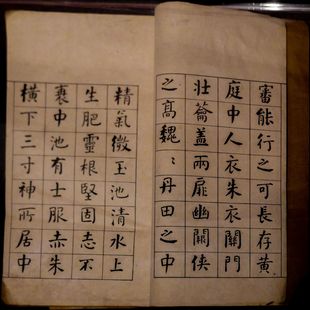 審能行之可長存黃
庭中人衣朱衣關門
壯蘥蓋兩扉幽闕俠
之高巍〻丹田之中
精氣微玉池清水上
生肥靈根堅固志不
衰中池有士服赤朱
橫下三寸神所居中